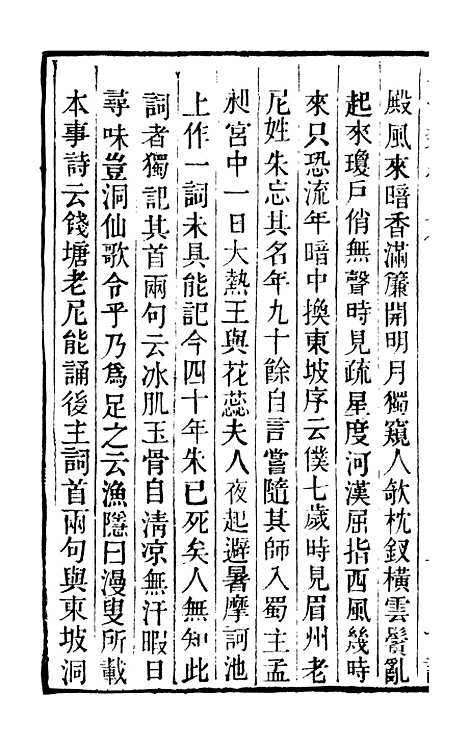 殿風來暗香滿簾開明月獨窺人欹枕釵橫雲鬢亂
起來瓊戶俏無聲時見疏星度河漢屈指西風幾時
來只恐流年暗中換東坡序云僕七歲時見眉州老
尼姓朱忘其名年九十餘自言嘗隨其師入蜀主孟
昶宮中一日大熱王與花蕊夫人夜起避暑摩訶池
上作一詞朱具能記今四十年朱已死矣人無知此
詞者獨記其首兩句云冰肌玉骨自清凉無汗暇日
尋味豈洞仙歌令乎乃爲足之云漁隱曰漫叟所載
本事詩云錢塘老尼能誦後主詞首兩句與東坡洞